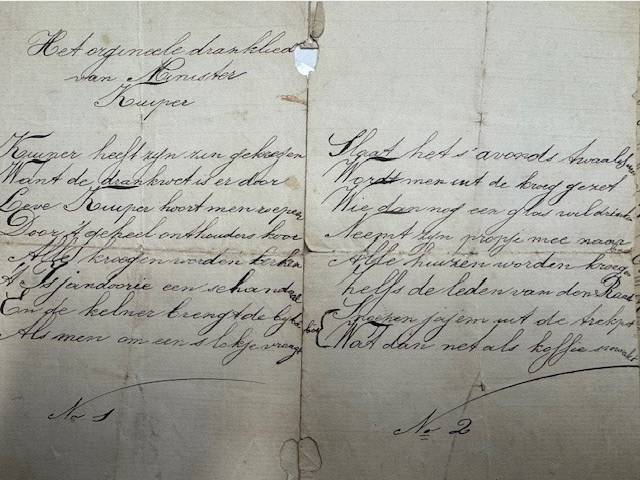 Het orgineele dranklied
van Minister
Kuiper
Kuiper heeft zyn zin gekregen
Want de drankwet is er door
Leve Kuiper hoort men roepen
Door 't geheel onthouders koor
Alle kroegen worden kerken
't Is jandoorie een schandaal
En de kelner brengt de bybel
Als men om een slokje vraagt
No 1
Slaat het s'avonds twaalf
Wordt men uit de kroeg gezet
Wie dan nog een glas wil drinken
Neemt zyn propje mee naar
Alle huizen worden kroegen
helfs de leden van den Raad
Snoepen jajem uit de trekpot
Wat dan net als koffie smaakt
No 2